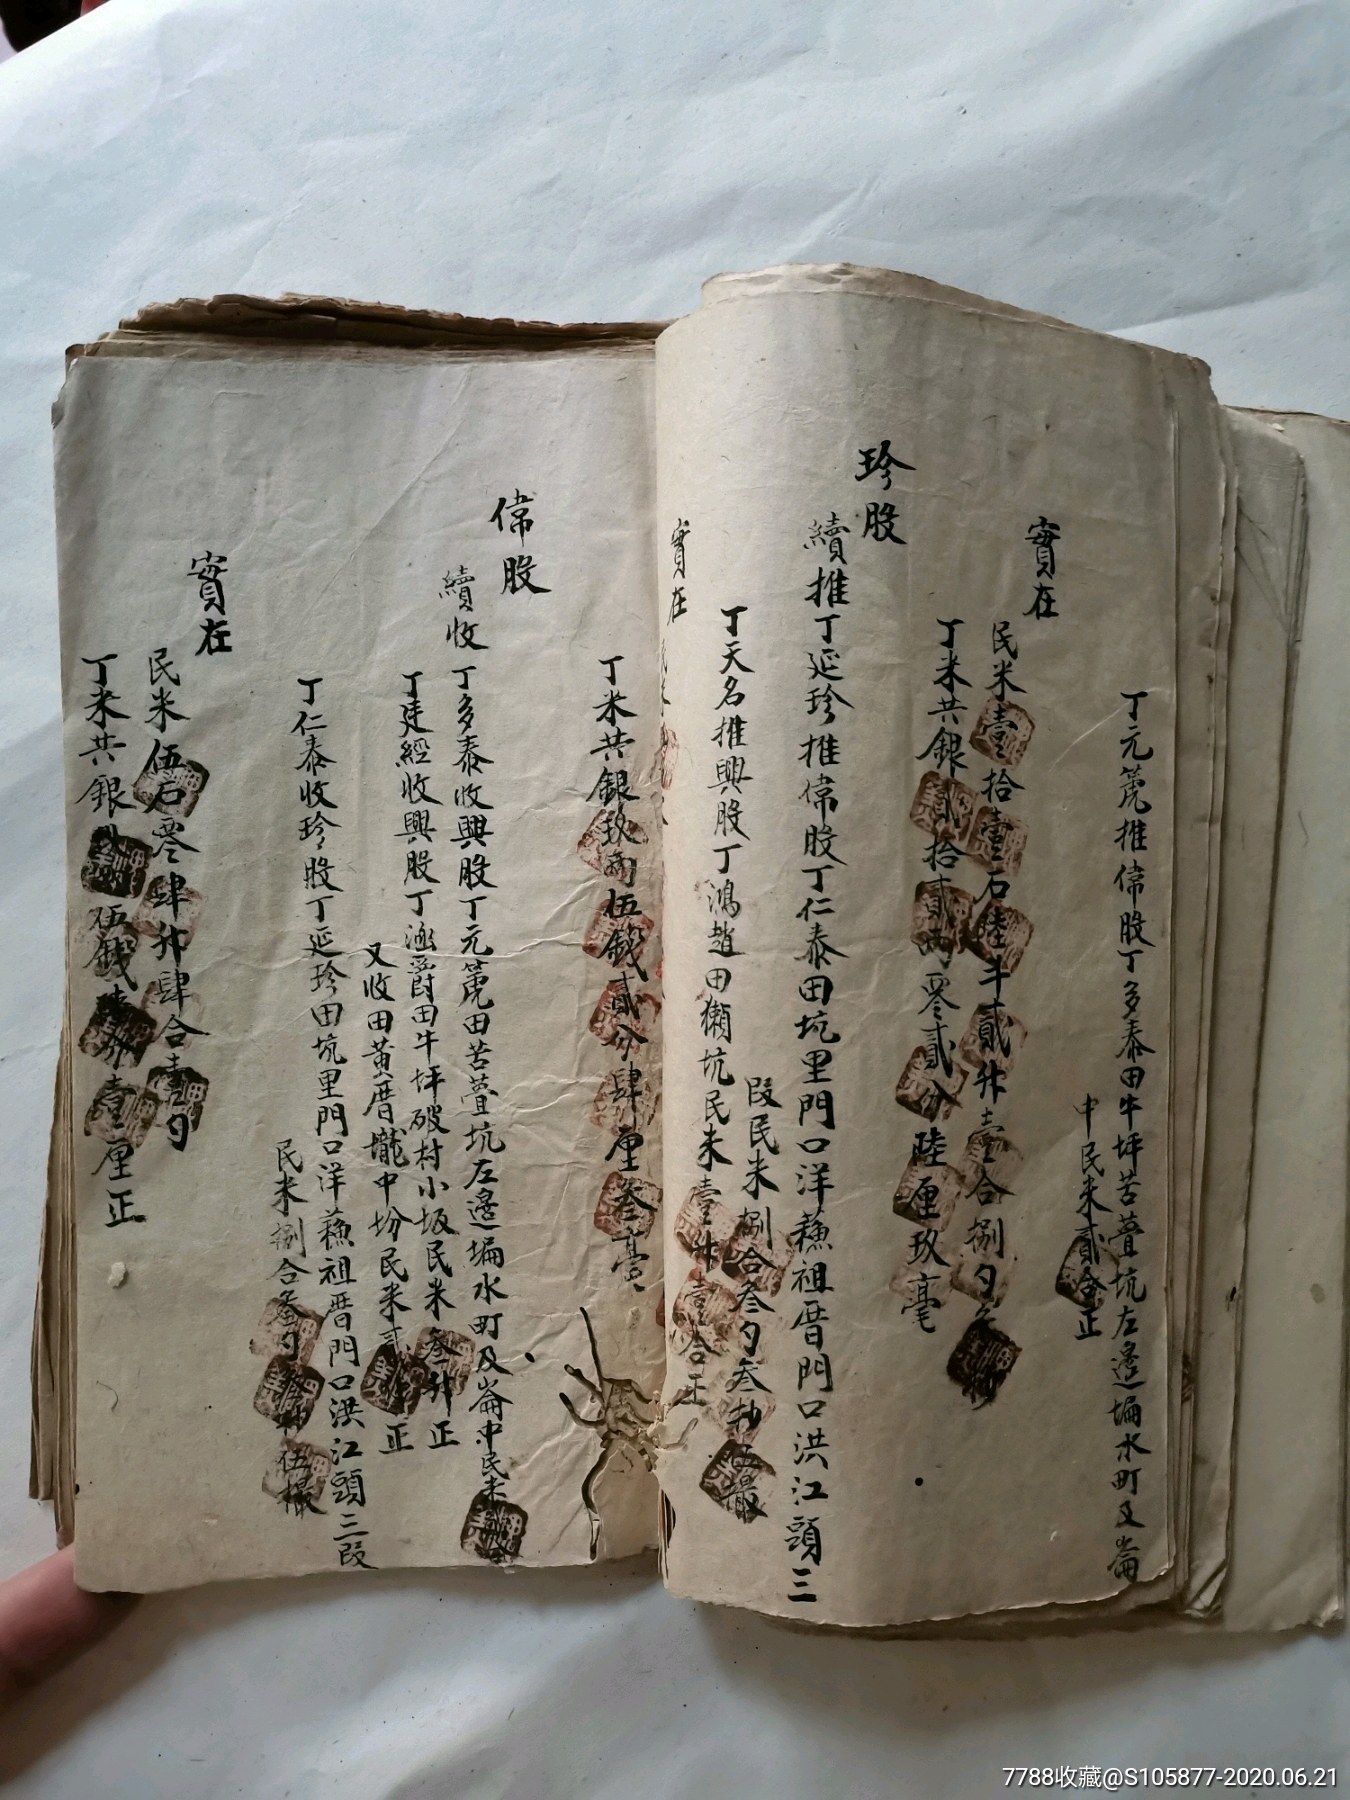 丁元篪推偉股丁多泰田牛坪苦薑坑左邊塥水町及崙
中民米貳合正
實在
民米壹拾壹石陸斗貳升壹合捌勺
丁米共銀貳拾貳兩零貳分陸厘玖毫
珍股
續推丁延珍推偉股丁仁泰田坑里門口洋蘓祖厝門口洪江頭三
段民米捌合叁勺叁抄伍撮
丁天名推興股丁鴻趙田獺坑民米壹升壹合正
實在
丁米共銀玖兩伍錢貳分肆厘叁毫
偉股
續收丁多泰收興股丁元篪田苦薑坑左邊塥水町及崙中民米
丁建經收興股丁涵爵田牛坪破村小坂民米叁升正
又收田黃厝壠中坋民米正
丁仁泰收珍股丁延珍田坑里門口洋蘓祖厝門口洪江頭三段
民米捌合叁勺叁抄伍撮
實在
民米伍石零肆升肆合壹勺
丁米共銀伍錢陸分壹厘正
7788收藏@S105877-2020.06.21